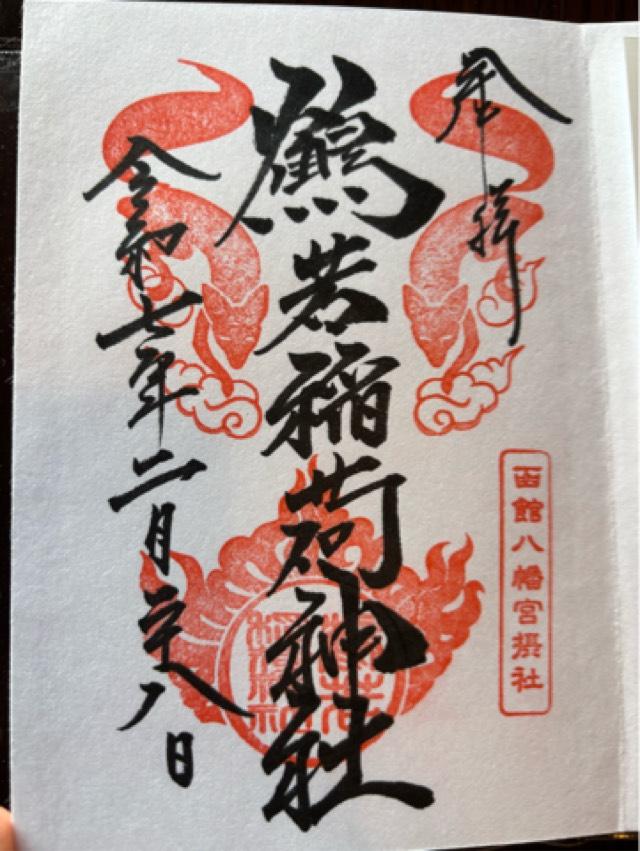 奉拝
函館八幡宮摂社
鶴若稲荷神社
令和七年二月二十八日